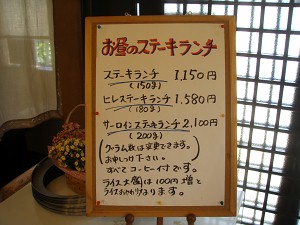 お昼のステーキランチ
ステーキランチ 1,150円
(150g)
ヒレステーキランチ 1,580円
(180g)
サーロインステーキランチ 2,100円
(200g)
グラム数は変更できます。
お申しつけ下さい。
すべてコーヒー付です。
ライス大盛は100円増と
ります。